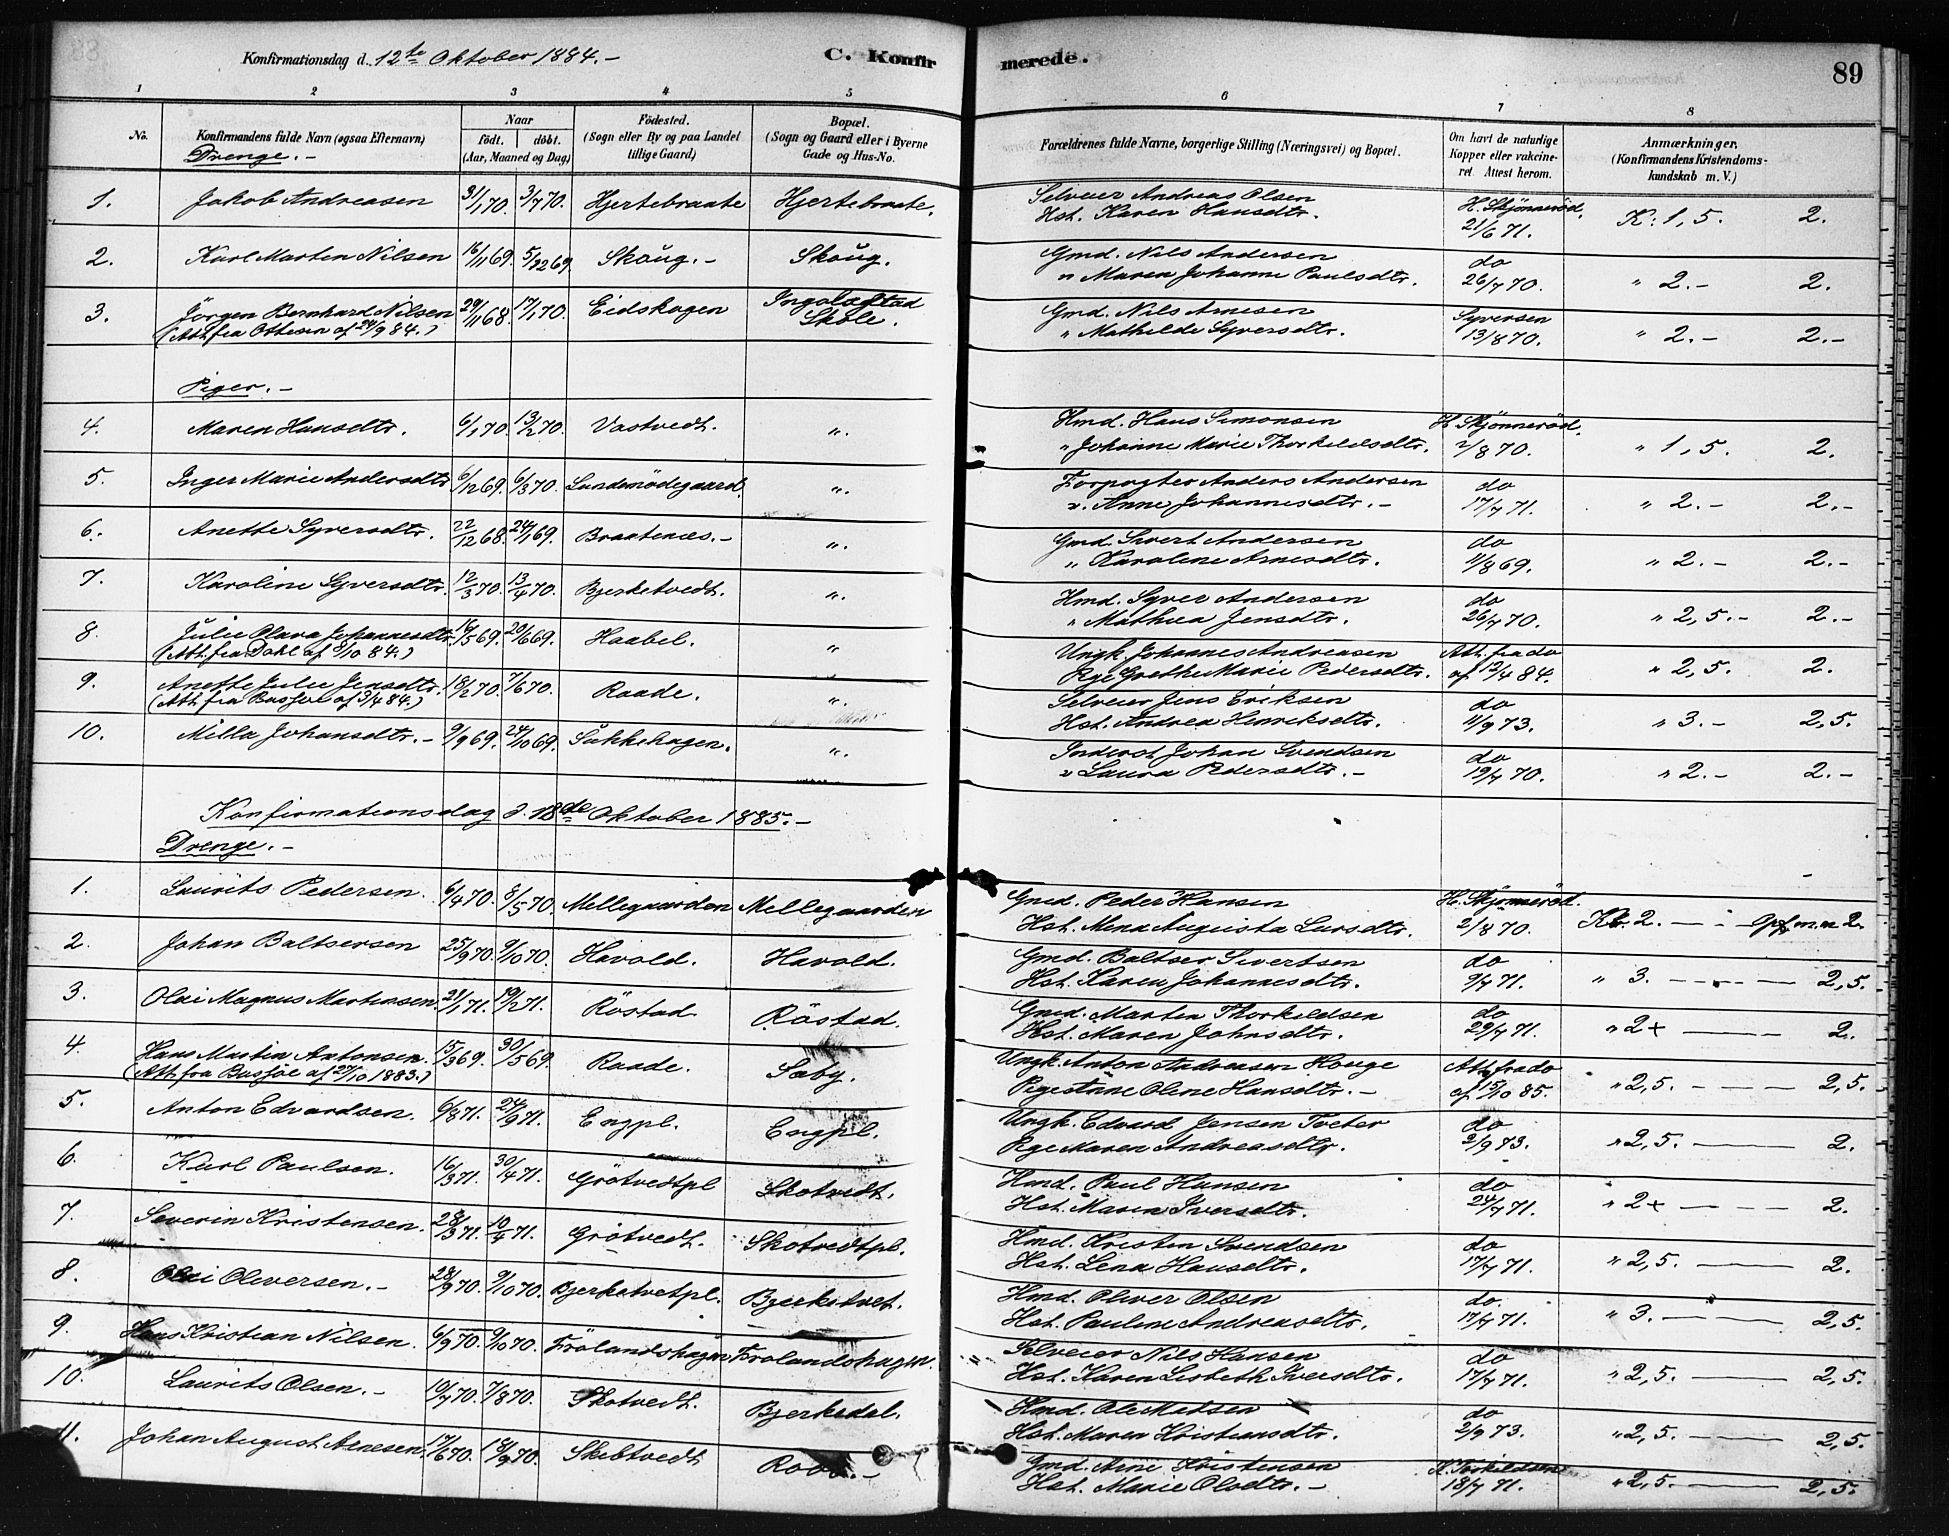 Konfirmationsdag d. 12te Oktober 1884. –
C. Konfirmerede.
89
1 2 3 4 5 6 7 8
No. Konfirmandens fulde Navn (ogsaa Efternavn) Naar födt. döbt. (Aar, Maaned og Dag) Födested. (Sogn eller By og paa Landet tillige Gaard) Bopæl. (Sogn og Gaard eller i Byerne Gade og Hus-No. Forældrenes fulde Navne, borgerlige Stilling (Næringsvei) og Bopæl. Om havt de naturlige Kopper eller vakcineret Attest herom. Anmærkninger. (Konfirmandens Kristendomskundskab m. V.)
Drenge. –
1. Jakob Andreasen 31/1 70. 3/7 70. Hjertebraate Hjertebraate. Selveier Andreas Olsen H. Skjönneröd. K: 1,5. 2.
Hst. Karen Hansdtr. 21/6 71.
2. Karl Martin Nilsen 16/11 69. 5/12 69 Skoug. – Skoug. Gmd. Nils Andersen do " 2. – 2.
" Maren Johanne Paulsdtr. 26/7 70.
3. Jörgen Bernhard Nilsen 29/11 68. 17/1 70. Eidskagen Ingolafstad Skole. Gmd. Nils Arnesen Syversen " 2. – 2. –
(Att. fra Ottesen af 24/9 84.) " Mathilde Syversdtr. 13/8 70.
Piger. –
4. Maren Hansdtr. 6/1 70. 13/2 70. Vastvedt. ". Hmd. Hans Simonsen H. Skjönneröd. " 1,5. 2.
" Johanne Marie Thorkildsdtr. 2/8 70.
5. Inger Marie Andersdtr 6/12 69. 6/3 70. Sundsmödegaard. ". Forpagter Anders Andersen do " 2. – 2. –
". Anne Johannesdtr. – 17/7 71.
6. Anette Syversdtr. 22/12 68. 24/1 69. Braatenæs. – ". Gmd. Sivert Andersen do " 2. – 2. –
" Karoline Arnesdtr. 11/8 69.
7. Karoline Syversdtr. 12/3 70. 13/4 70. Bjerketvedt. ". Hmd. Syver Andersen do " 2,5. – 2. –
" Mathea Jensdtr. 26/7 70.
8. Julie Olava Johannesdtr. 16/5 69. 20/6 69. Haabel. " Ungk. Johannes Andreasen Att. fra do " 2,5. 2.
(Att. fra Dahl af 8/10 84.) Pge Grethe Marie Pedersdtr. af 12/4 84.
9. Anette Julie Jensdtr. 18/2 70. 7/6 70. Raade. ". Selveier Jens Eriksen do " 3. – 2,5.
(Att. fra Bassöe af 3/4 84.) Hst. Andrea Henriksdtr. 11/9 73.
10. Milla Johansdtr. – 9/9 69. 24/10 69. Sukkehagen. ". Inderst Johan Svendsen do " 2. – 2. –
" Laura Pedersdtr. – 19/7 70.
Konfirmationsdag d. 18de Oktober 1885. –
Drenge. –
1. Laurits Pedersen. 6/4 70. 8/5 70. Mellegaarden Mellegaarden Gmd. Peder Hansen H. Skjönneröd. Kr. 2. – 2.
Hst. Mina Augusta Larsdtr. 2/8 70.
2. Johan Baltsersen 25/9 70. 9/10 70. Havold. Havold. Gmd. Baltser Sivertsen do " 3. – 2,5.
Hst. Karen Johannesdtr. 9/7 71.
3. Olai Magnus Martinsen. 21/1 71. 19/2 71. Röstad Röstad. Gmd. Martin Thorkildsen do " 2+ – 2.
Hst. Maren Johnsdtr. 29/7 71.
4. Hans Martin Antonsen. 15/3 69. 30/5 69. Raade. Saby. Ungk. Anton Andreasen Houge Att. fra do " 2,5. – 2,5.
(Att. fra Bassöe af 27/10 1883.) Pige Anne Oline Hansdtr. – af 15/10 85.
5. Anton Edvardsen. 6/8 71. 24/9 71. Engpl. Engpl. Ungk. Edvard Jensen Tveter do " 2,5. – 2.
Pge Maren Andreasdtr. 2/9 73.
6. Karl Paulsen. 16/3 71. 30/4 71. Grötvedtpl Skotvedt. Hmd. Paul Hansen do " 2+ – 2.
Hst. Maren Iversdtr. 24/7 71.
7. Severin Kristensen. 28/3 71. 10/4 71. Grötvedt. Skotvedtpl. Hmd. Kristen Svendsen do " 2,5. – 2.
Hst. Lena Hansdtr. 17/7 71.
8. Olai Oliversen. – 28/9 70. 9/10 70. Bjerketvetpl. Bjerketvet. Hmd. Oliver Olsen do. " 3. – 2,5.
Hst. Pauline Andreasdtr. 17/7 71.
9. Hans Kristian Nilsen. 6/9 70. 9/10 70. Frölandshagen Frölandshagen. Selveier Nils Hansen do " 2,5. – 2,5.
Hst. Karen Lisbeth Iversdtr. 17/7 71.
10. Laurits Olsen. – 10/7 70. 7/8 70. Skotvedt. Bjerkedal. Hmd. Ole Matsen do " 2,5. – 2,5.
Hst. Maren Kristiansdtr. 2/9 73.
11. Johan August Arnesen. 17/6 70. 18/9 70. Skebtvedt Gmd. Arne Kristensen " 2,5. – 2,5.
Hst. Marie Olsdtr. – 18/7 71.